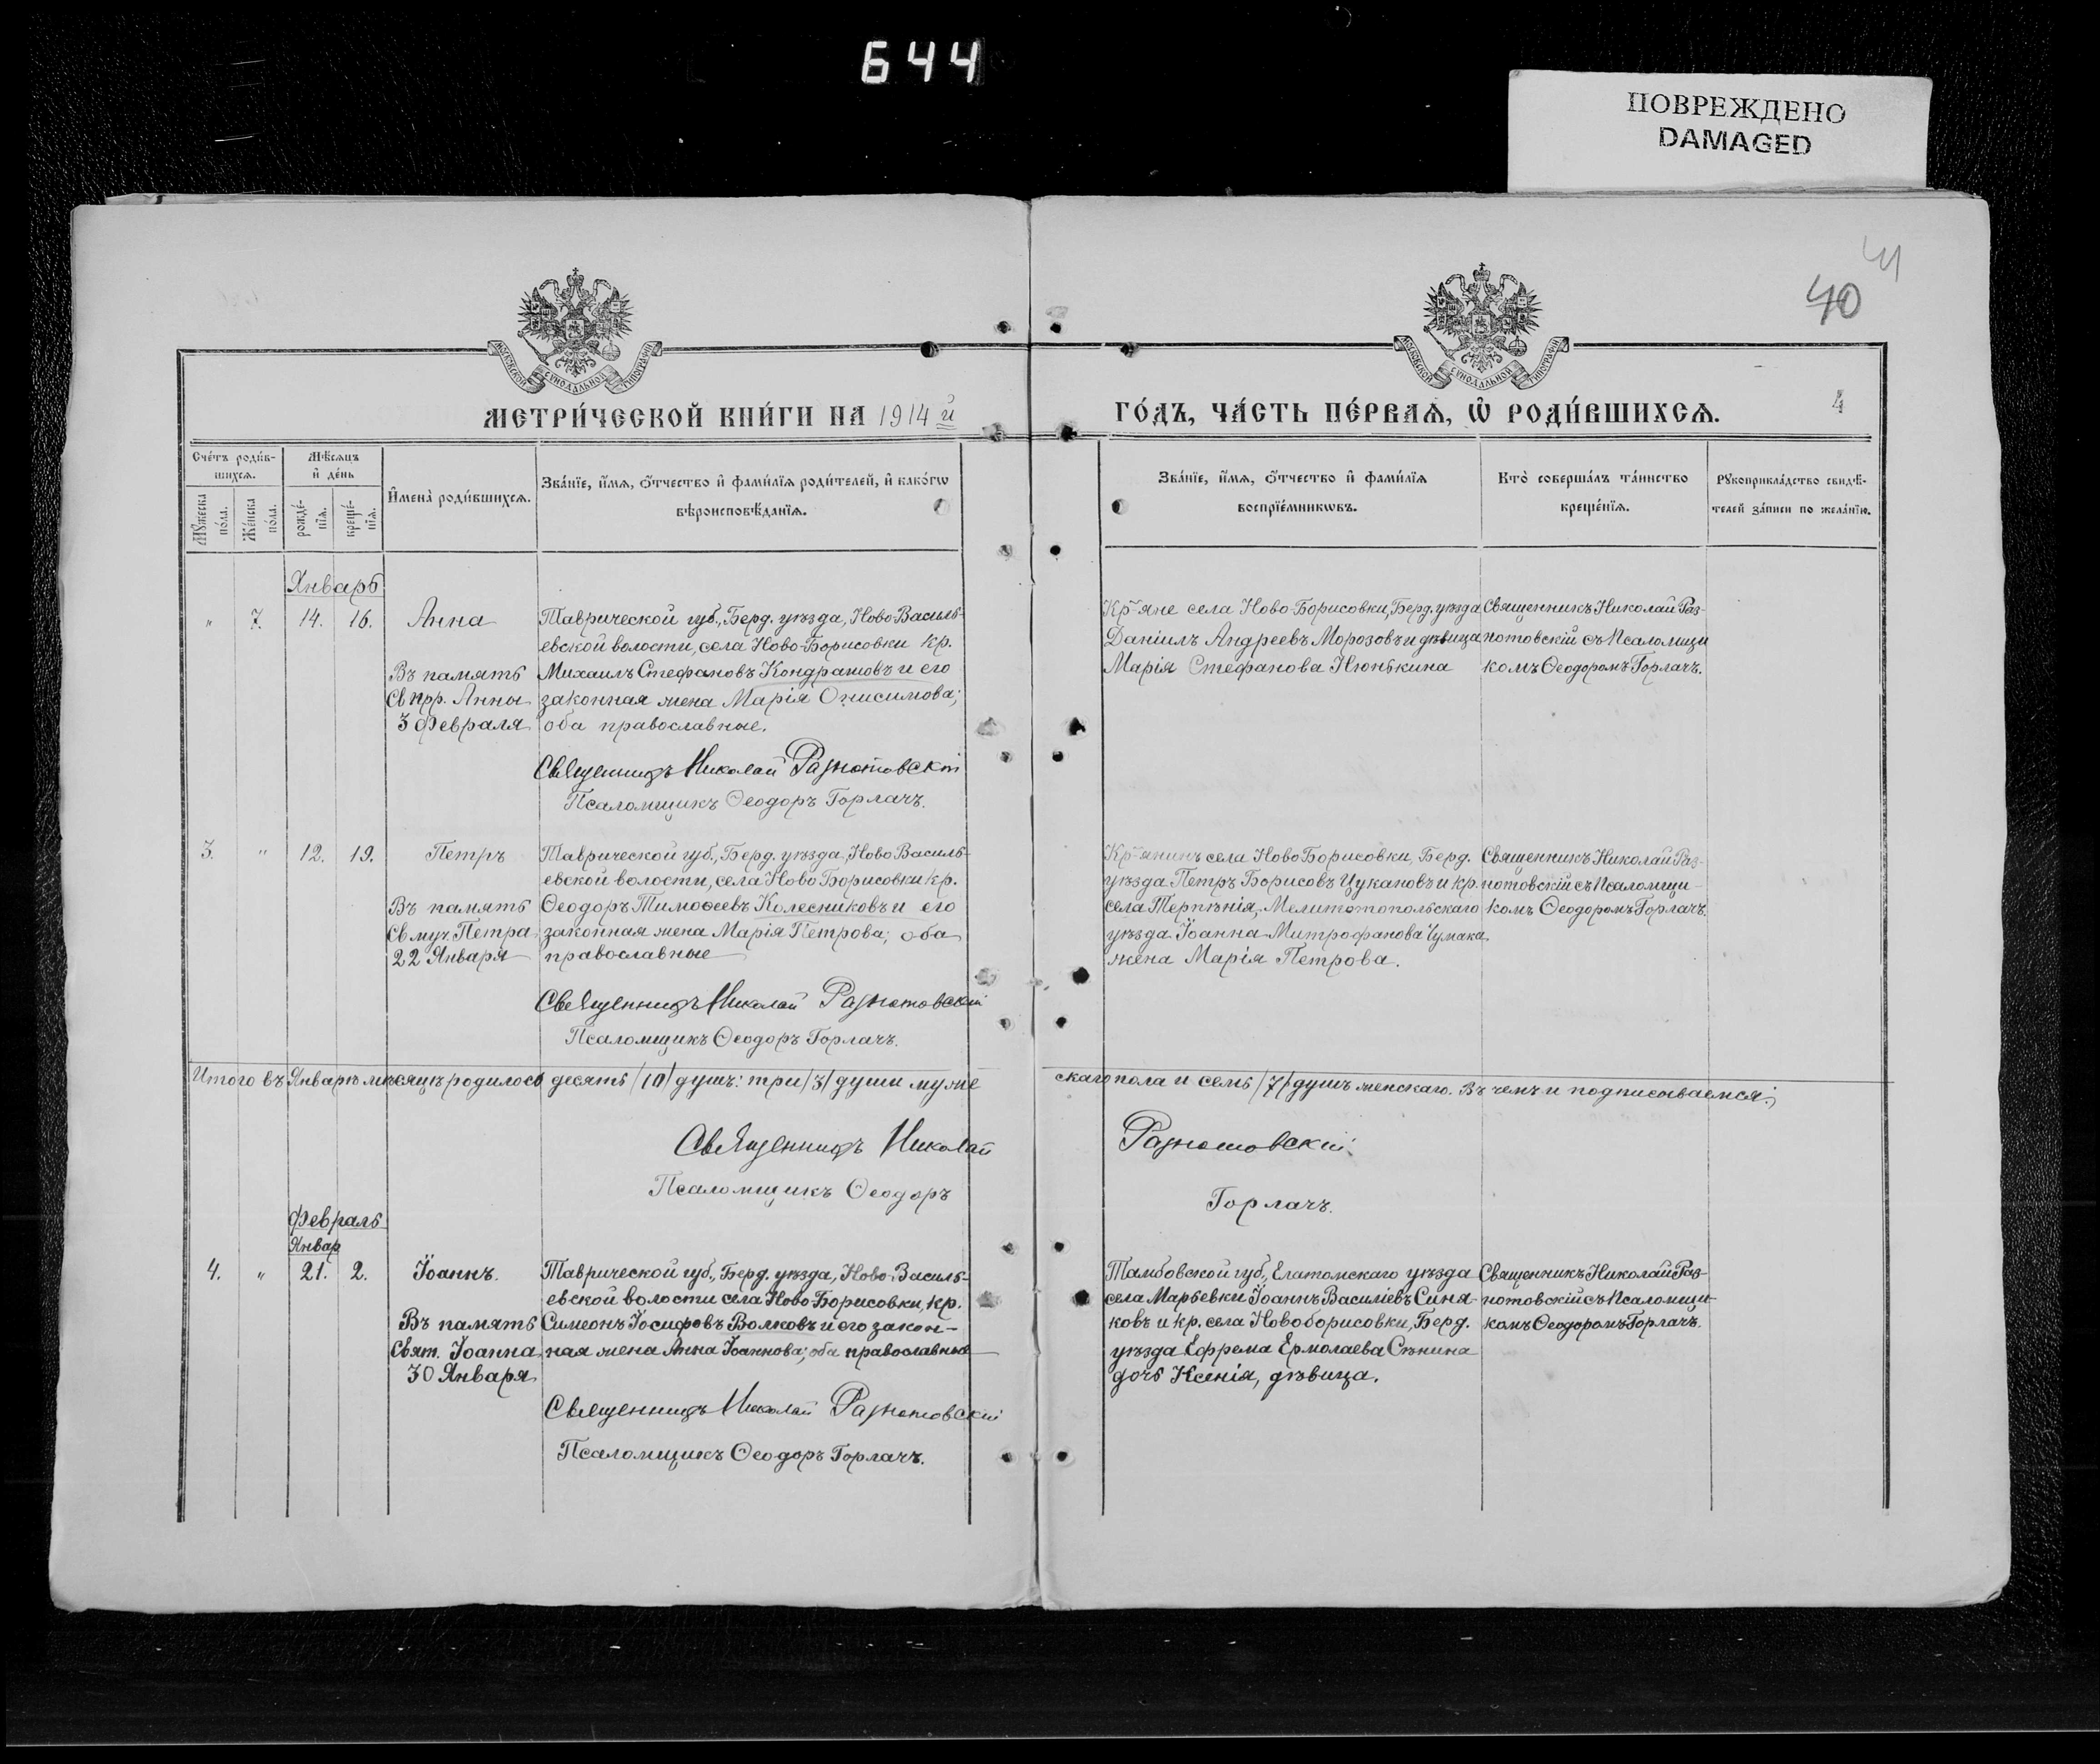 644
ПОВРЕЖДЕНО
DAMAGED
41
40
МОСКОВСКОЙ СѴНОДАЛЬНОЙ ТИПОГРАФІИ
МОСКОВСКОЙ СѴНОДАЛЬНОЙ ТИПОГРАФІИ
МЕТРИ́ЧЕСКОЙ КНИ́ГИ НА 1914й
ГО́ДЪ, ЧА́СТЬ ПЕ́РВАѦ, Ѡ҆ РОДИ́ВШИХСѦ.
4
Сче́тъ роди́в-
шихсѧ.
Мѣ́сѧцъ
и҆ де́нь
И҆мена̀ роди́вшихсѧ.
Зва́нїе, и҆́мѧ, ѻ҆́тчество и҆ фами́лїѧ роди́телей, и҆ како́гѡ
вѣроисповѣ́данїѧ.
Мꙋ́жеска
по́ла.
Же́нска
по́ла.
рожде́-
нїѧ.
креще́-
нїѧ.
Зва́нїе, и҆́мѧ, ѻ҆́тчество и҆ фами́лїѧ
воспрїе́мникѡвъ.
Кто̀ соверша́лъ та́инство
креще́нїѧ.
Рꙋкоприкла́дство свидѣ́-
телей за́писи по жела́нїю.
Январь
" 7. 14. 16. Анна
Въ память
Св прр. Анны
3 Февраля
Таврической губ., Берд. уѣзда, Ново-Василь-
евской волости, села Ново-Борисовки кр.
Михаилъ Стефановъ Кондратовъ и его
законная жена Марія Онисимова;
оба православные.
Священникъ Николай Разнотовскій
Псаломщикъ Ѳеодоръ Горлачъ.
Кр-яне села Ново-Борисовки, Берд. уѣзда
Даніилъ Андреевъ Морозовъ и дѣвица
Марія Стефанова Нюнькина
Священникъ Николай Раз-
нотовскій съ Псаломщи
комъ Ѳеодоромъ Горлачъ.
3. " 12. 19. Петръ
Въ память
Св муч. Петра
22 Января
Таврической губ., Берд. уѣзда, Ново Василь-
евской волости, села Ново Борисовки кр.
Ѳеодоръ Тимоѳеевъ Колесниковъ и его
законная жена Марія Петрова; оба
православные
Священникъ Николай Разнотовскій
Псаломщикъ Ѳеодоръ Горлачъ.
Кр-янинъ села Ново Борисовки, Берд.
уѣзда Петръ Борисовъ Цукановъ и кр.
села Терпѣнія, Мелитотопольскаго
уѣзда Іоанна Митрофанова Чумака
жена Марія Петрова.
Священникъ Николай Раз-
нотовскій съ Псаломщи-
комъ Ѳеодоромъ Горлачъ.
Итого въ Январѣ мѣсяцѣ родилось десять /10/ душъ: три /3/ души муже
скаго пола и семь /7/ душъ женскаго. Въ чемъ и подписываемся:
Священникъ Николай
Разнотовскій.
Псаломщикъ Ѳеодоръ
Горлачъ.
Февраль
Январ
4. " 21. 2. Іоаннъ.
Въ память
Свят. Іоанна
30 Января
Таврической губ., Берд. уѣзда, Ново-Василь-
евской волости села Ново Борисовки, кр.
Симеонъ Іосифовъ Волковъ и его закон-
ная жена Анна Іоаннова; оба православные
Священникъ Николай Разнотовскій
Псаломщикъ Ѳеодоръ Горлачъ.
Тамбовской губ., Елатомскаго уѣзда
села Марьевки Іоаннъ Василіевъ Синя-
ковъ и кр. села Новоборисовки, Берд.
уѣзда Ефрема Ермолаева Сѣнина
дочь Ксенія, дѣвица.
Священникъ Николай Раз-
нотовскій съ Псаломщи-
комъ Ѳеодоромъ Горлачъ.